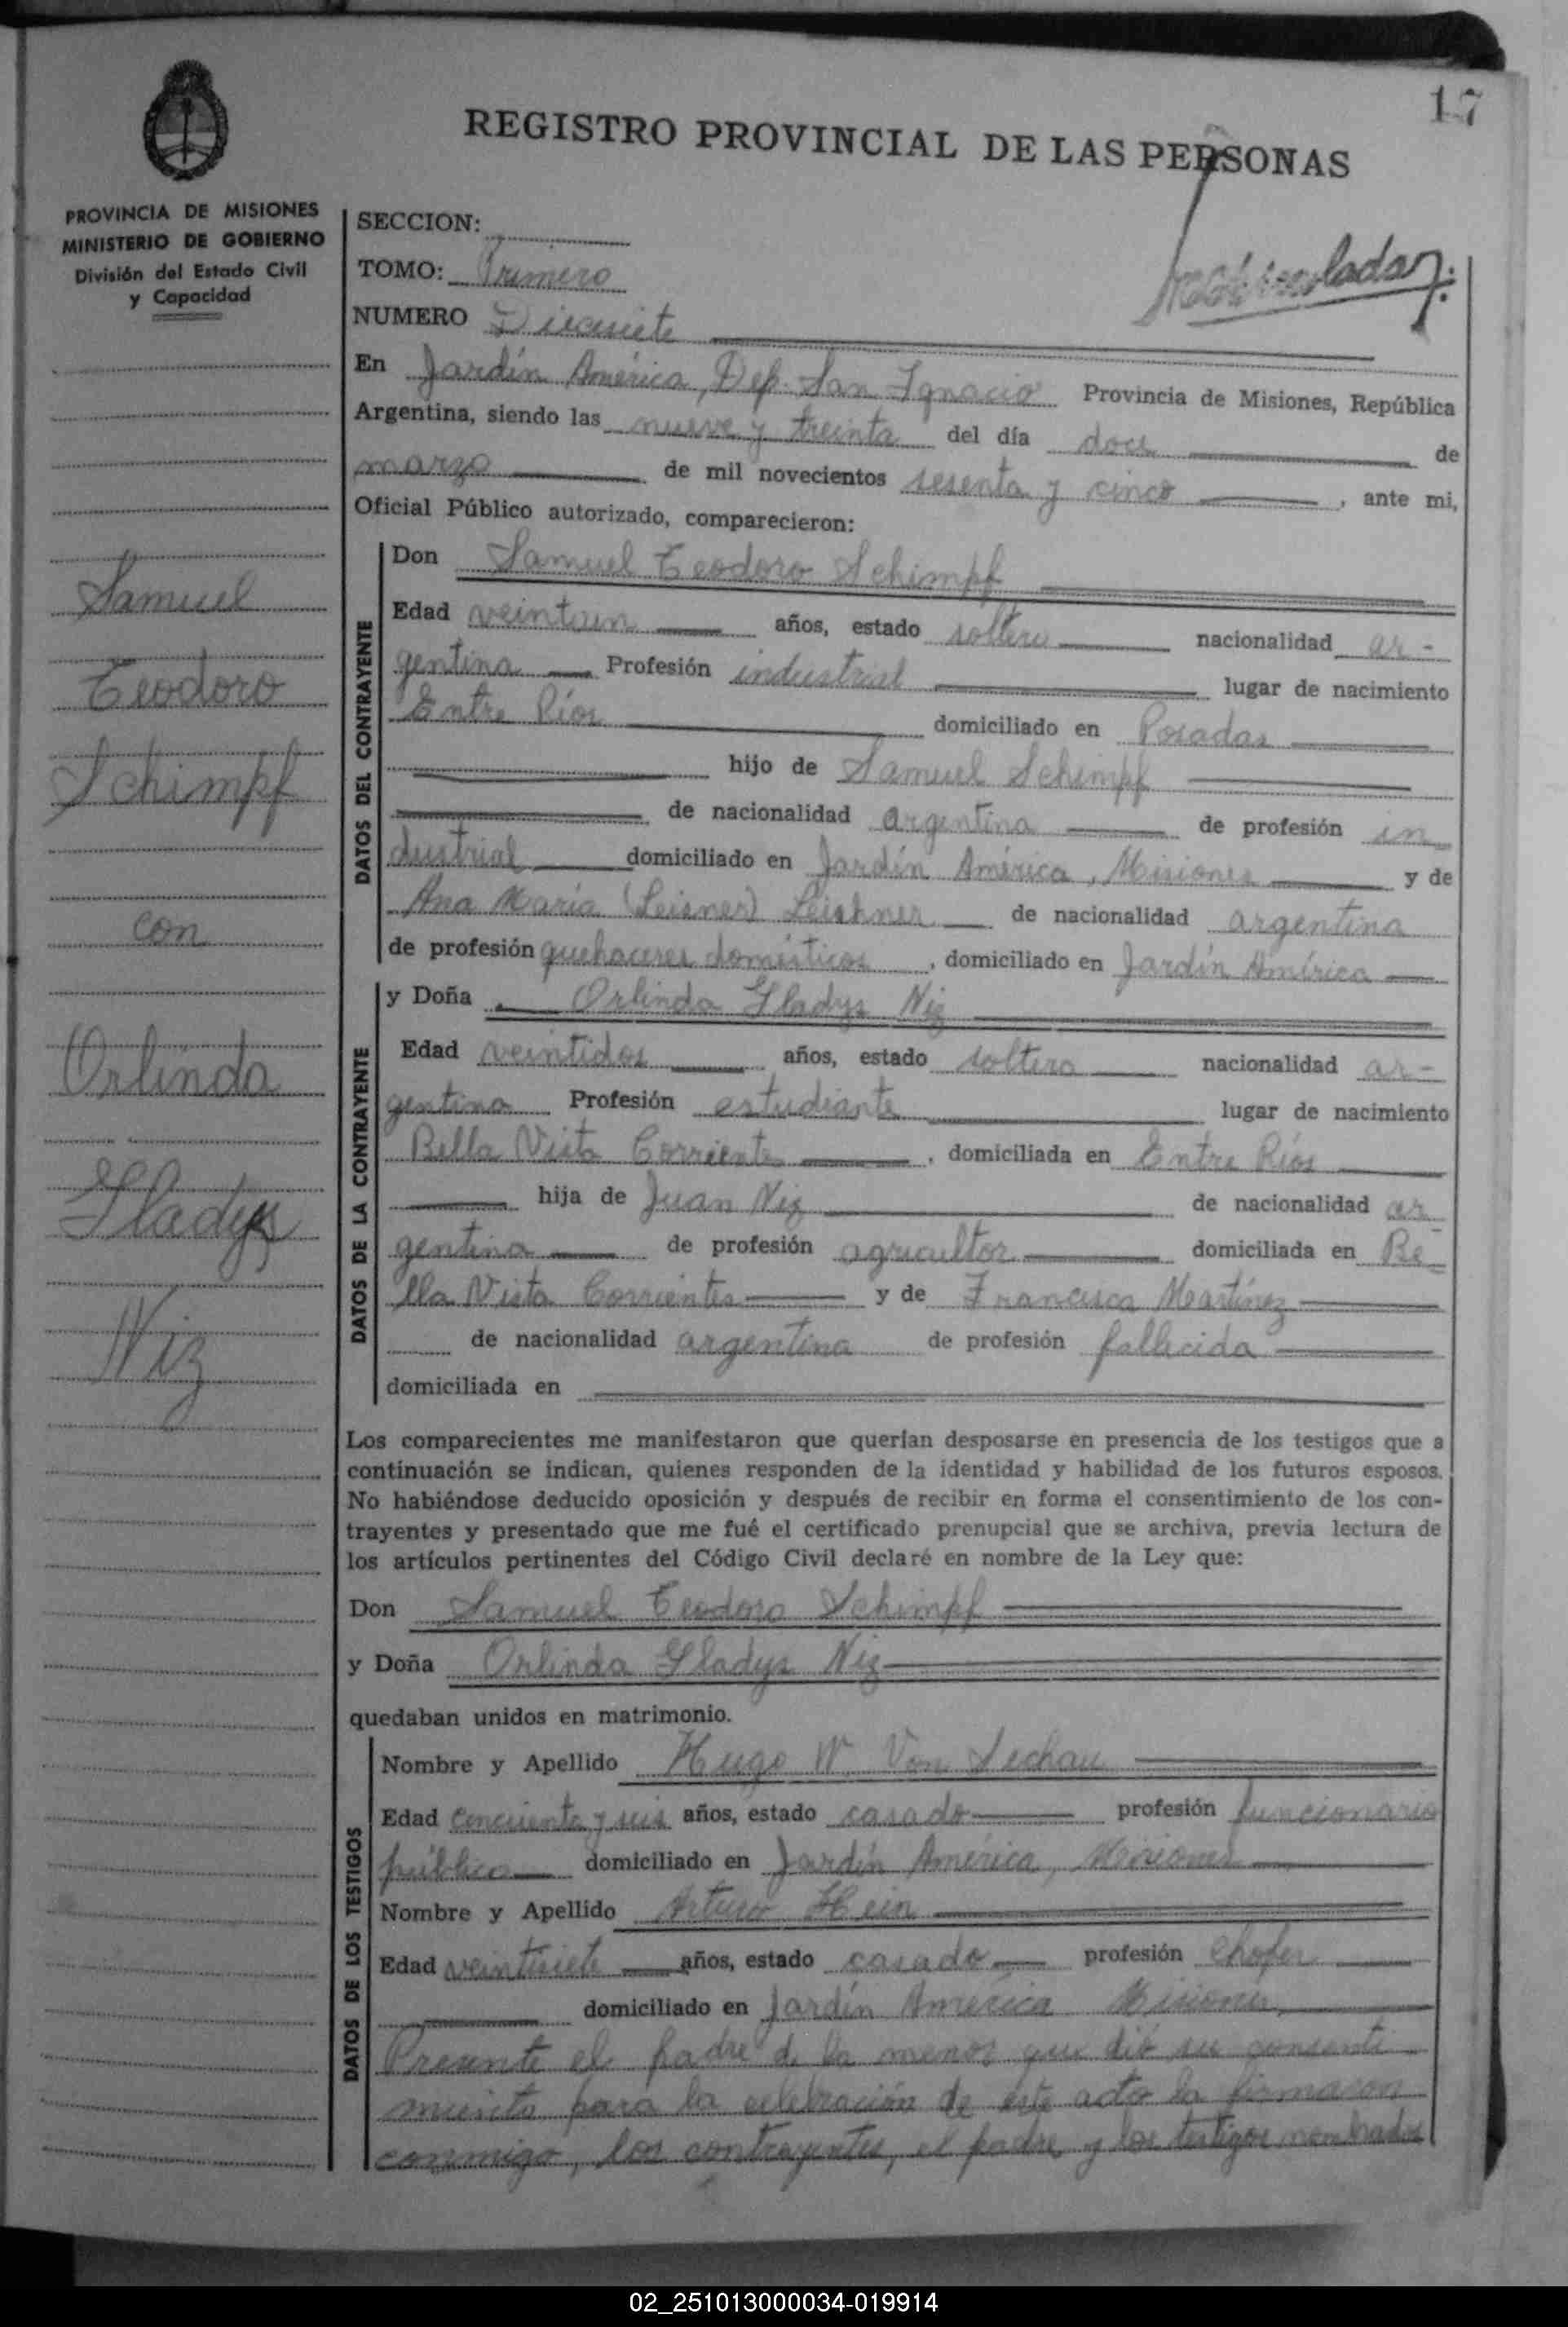 17
REGISTRO PROVINCIAL DE LAS PERSONAS
PROVINCIA DE MISIONES
MINISTERIO DE GOBIERNO
División del Estado Civil
y Capacidad
Samuel
Teodoro
Schimpf
con
Orlinda
Gladys
Niz
SECCION:
TOMO: Primero
NUMERO Diecisiete
En Jardín América, Dep. San Ignacio Provincia de Misiones, República
Argentina, siendo las nueve y treinta del día doce de
marzo de mil novecientos sesenta y cinco, ante mi,
Oficial Público autorizado, comparecieron:
DATOS DEL CONTRAYENTE
Don Samuel Teodoro Schimpf
Edad veintiun años, estado soltero nacionalidad ar-
gentina Profesión industrial lugar de nacimiento
Entre Ríos domiciliado en Posadas
hijo de Samuel Schimpf
de nacionalidad argentina de profesión in
dustrial domiciliado en Jardín América, Misiones y de
Ana María (Leisner) Leishner de nacionalidad argentina
de profesión quehaceres domésticos, domiciliado en Jardín América
DATOS DE LA CONTRAYENTE
y Doña Orlinda Gladys Niz
Edad veintidos años, estado soltera nacionalidad ar-
gentina Profesión estudiante lugar de nacimiento
Bella Vista Corrientes, domiciliada en Entre Ríos
hija de Juan Niz de nacionalidad ar
gentina de profesión agricultor domiciliada en Be-
lla Vista Corrientes y de Francisca Martínez
de nacionalidad argentina de profesión fallecida
domiciliada en
Los comparecientes me manifestaron que querían desposarse en presencia de los testigos que a
continuación se indican, quienes responden de la identidad y habilidad de los futuros esposos.
No habiéndose deducido oposición y después de recibir en forma el consentimiento de los con-
trayentes y presentado que me fué el certificado prenupcial que se archiva, previa lectura de
los artículos pertinentes del Código Civil declaré en nombre de la Ley que:
Don Samuel Teodoro Schimpf
y Doña Orlinda Gladys Niz
quedaban unidos en matrimonio.
DATOS DE LOS TESTIGOS
Nombre y Apellido Hugo W. Von Sechau
Edad cincuenta y seis años, estado casado profesión funcionario
público domiciliado en Jardín América, Misiones
Nombre y Apellido Arturo Hein
Edad veintisiete años, estado casado profesión chofer
domiciliado en Jardín América Misiones
Presente el padre de la menor que dió su consenti
miento para la celebración de este acto la firmaron
conmigo, los contrayentes, el padre y los testigos nombrados
02_251013000034-019914